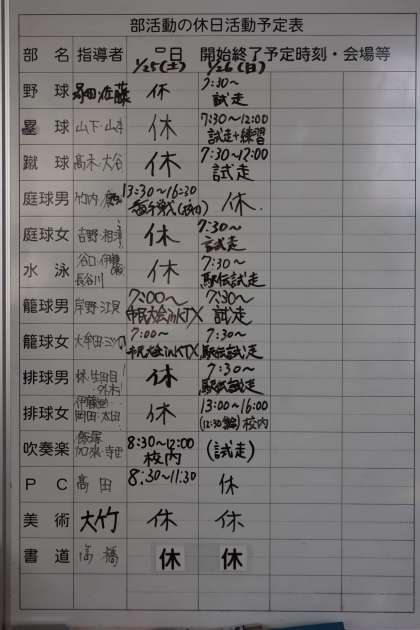 部活動の休日活動予定表
部 名 指導者 日 開始終了予定時刻・会場等
1/25(土) 1/26(日)
野 球 休 7:30~
試走
塁 球 山下・山本 休 7:30~12:00
試走+練習
蹴 球 高木・大谷 休 7:30~12:00
試走
庭球男 竹内 13:30~16:30 休
(校内)
庭球女 吉野・相澤 休 7:30~
試走
水 泳 谷口・伊藤 休 7:30~
長谷川 駅伝試走
籠球男 岸野・江見 7:00~ 7:30~
市民大会inKTX 試走
籠球女 7:00~ 7:30~
市民大会inKTX 駅伝試走
排球男 休 7:30~
駅伝試走
排球女 伊藤 休 13:00~16:00
岡田・太田 校内
吹奏楽 飯塚 8:30~12:00 (試走)
加永・寺西 校内
PC 高田 8:30~11:30 休
美 術 大竹 休 休
書 道 高橋 休 休